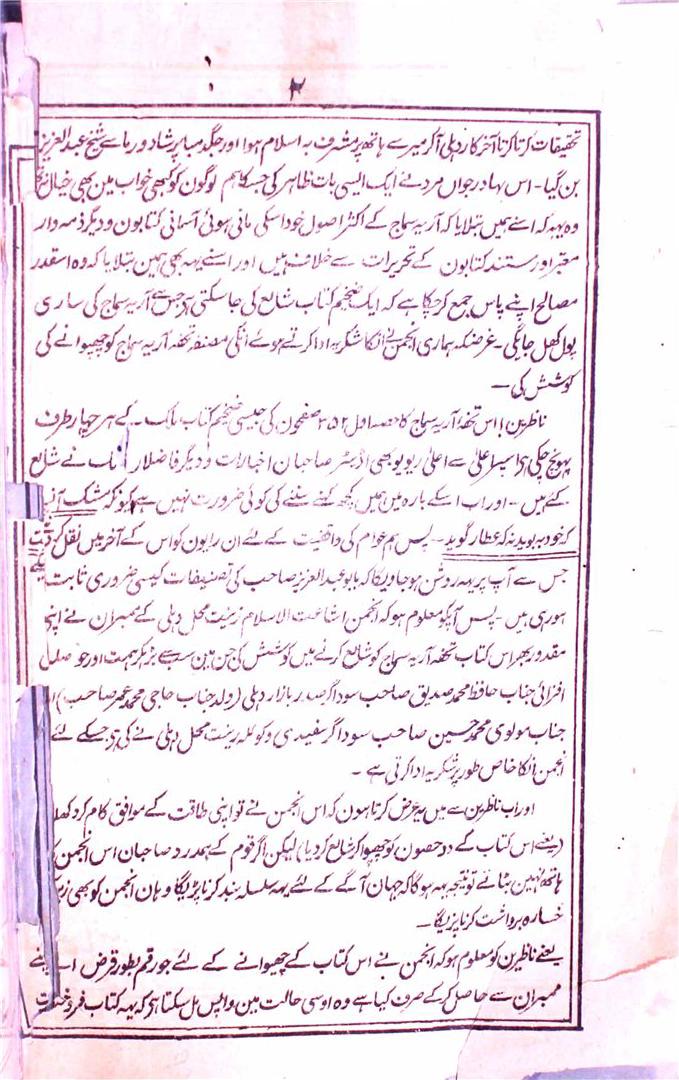 ۳
تحقیقات کرتا کرتا آخرکار دہلی آکر میرے ہاتھ پر مشرف بہ اسلام ہوا اور جگدمبا پرشاد ورما سے شیخ عبدالعزیز
بن گیا۔ اس بہادر جواں مرد نے ایک ایسی بات ظاہر کی جسکا ہم لوگون کو کبھی خواب مین بھی خیال نہ تھا
وہ یہہ کہ اسنے ہمیں بتلایا کہ آریہ سماج کے اکثر اصول خود اسکی مانی ہوئی آسمانی کتابون و دیگر ذمہ وار
معتبر اور مستند کتابون کے تحریرات سے خلاف ہیں اور اسنے یہہ بھی ہمین بتلایا کہ وہ اسقدر
مصالح اپنے پاس جمع کر چکا ہے کہ ایک ضخیم کتاب شایع کی جا سکتی ہے جس سے آریہ سماج کی ساری
پول کھل جائیگی۔ غرضکہ ہماری انجمن نے انکا شکریہ ادا کرتے ہوئے انکی مصنفہ تحفہ آریہ سماج کو چھپوانے کی
کوشش کی۔
ناظرین! اس تحفہ آریہ سماج کا حصہ اول ۲۵۲ صفحون کی جیسی ضخیم کتاب ملک کے ہر چہار طرف
پہونچ چکی ہے اسپر اعلیٰ سے اعلیٰ ریویو بھی اڈیٹر صاحبان اخبارات و دیگر فاضلان نے شایع
کئے ہیں۔ اور اب اسکے بارہ مین ہمیں کچھ کہنے سننے کی کوئی ضرورت نہیں ہے کیونکہ مشک آنست
کہ خود ببوید نہ کہ عطار گوید۔ پس ہم عوام کی واقفیت کے لئے ان رایون کو اس کے آخر میں نقل کر
جس سے آپ پر یہہ روشن ہو جاویگا کہ بابو عبدالعزیز صاحب کی تصنیفات کیسی ضروری ثابت
ہو رہی ہیں۔ پس آپکو معلوم ہو کہ انجمن اشاعت الاسلام زینت محل دہلی کے ممبران نے اپنی
مقدور بھر اس کتاب تحفہ آریہ سماج کو شایع کرنے میں کوشش کی جن مین سب سے بڑھکر ہمت اور حوصلہ
افزائی جناب حافظ محمد صدیق صاحب سوداگر صدر بازار دہلی (ولد جناب حاجی محمد عمر صاحب)
جناب مولوی محمد حسین صاحب سوداگر سفیدی و کوئلہ زینت محل دہلی نے کی ہے جسکے لئے
انجمن انکا خاص طور پر شکریہ ادا کرتی ہے۔
اور اب ناظرین سے میں یہ عرض کرتا ہون کہ اس انجمن نے تو اپنی طاقت کے موافق کام کر دکھا
(یعنے اس کتاب کے دو حصون کو چھپوا کر شایع کر دیا) لیکن اگر قوم کے ہمدرد صاحبان اس انجمن
ہاتھ نہیں بٹائے تو نتیجہ یہہ ہوگا کہ جہان آگے کے لئے یہہ سلسلہ بند کرنا پڑیگا وہان انجمن کو بھی زیر
خسارہ برداشت کرنا پڑیگا۔
یعنے ناظرین کو معلوم ہو کہ انجمن نے اس کتاب کے چھپوانے کے لئے جو رقم بطور قرض اپنے
ممبران سے حاصل کر کے صرف کیا ہے وہ اوسی حالت مین واپس مل سکتا ہے کہ یہہ کتاب فروخت